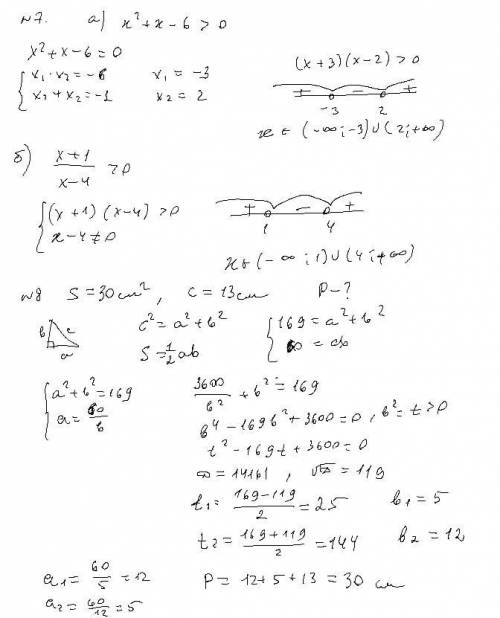 №7. а) x² + x - 6 > 0
x² + x - 6 = 0
{ x₁ · x₂ = -6    x₁ = -3
x₂ + x₂ = -1    x₂ = 2
(x + 3)(x - 2) > 0
+ - +
-3 2
x ∈ (-∞; -3) ∪ (2; +∞)
б) (x + 1)/(x - 4) > 0
{ (x + 1)(x - 4) > 0
x - 4 ≠ 0
+ - +
1 4
x ∈ (-∞; 1) ∪ (4; +∞)
№8 S = 30 см², c = 13 см P - ?
b c a
c² = a² + b²
S = ½ab
{ 169 = a² + b²
60 = ab
{ a² + b² = 169
a = 60/b
3600/b² + b² = 169
b⁴ - 169b² + 3600 = 0, b² = t > 0
t² - 169t + 3600 = 0
D = 14161, √D = 119
t₁ = (169 - 119)/2 = 25    b₁ = 5
t₂ = (169 + 119)/2 = 144    b₂ = 12
a₁ = 60/5 = 12    P = 12 + 5 + 13 = 30 см
a₂ = 60/12 = 5